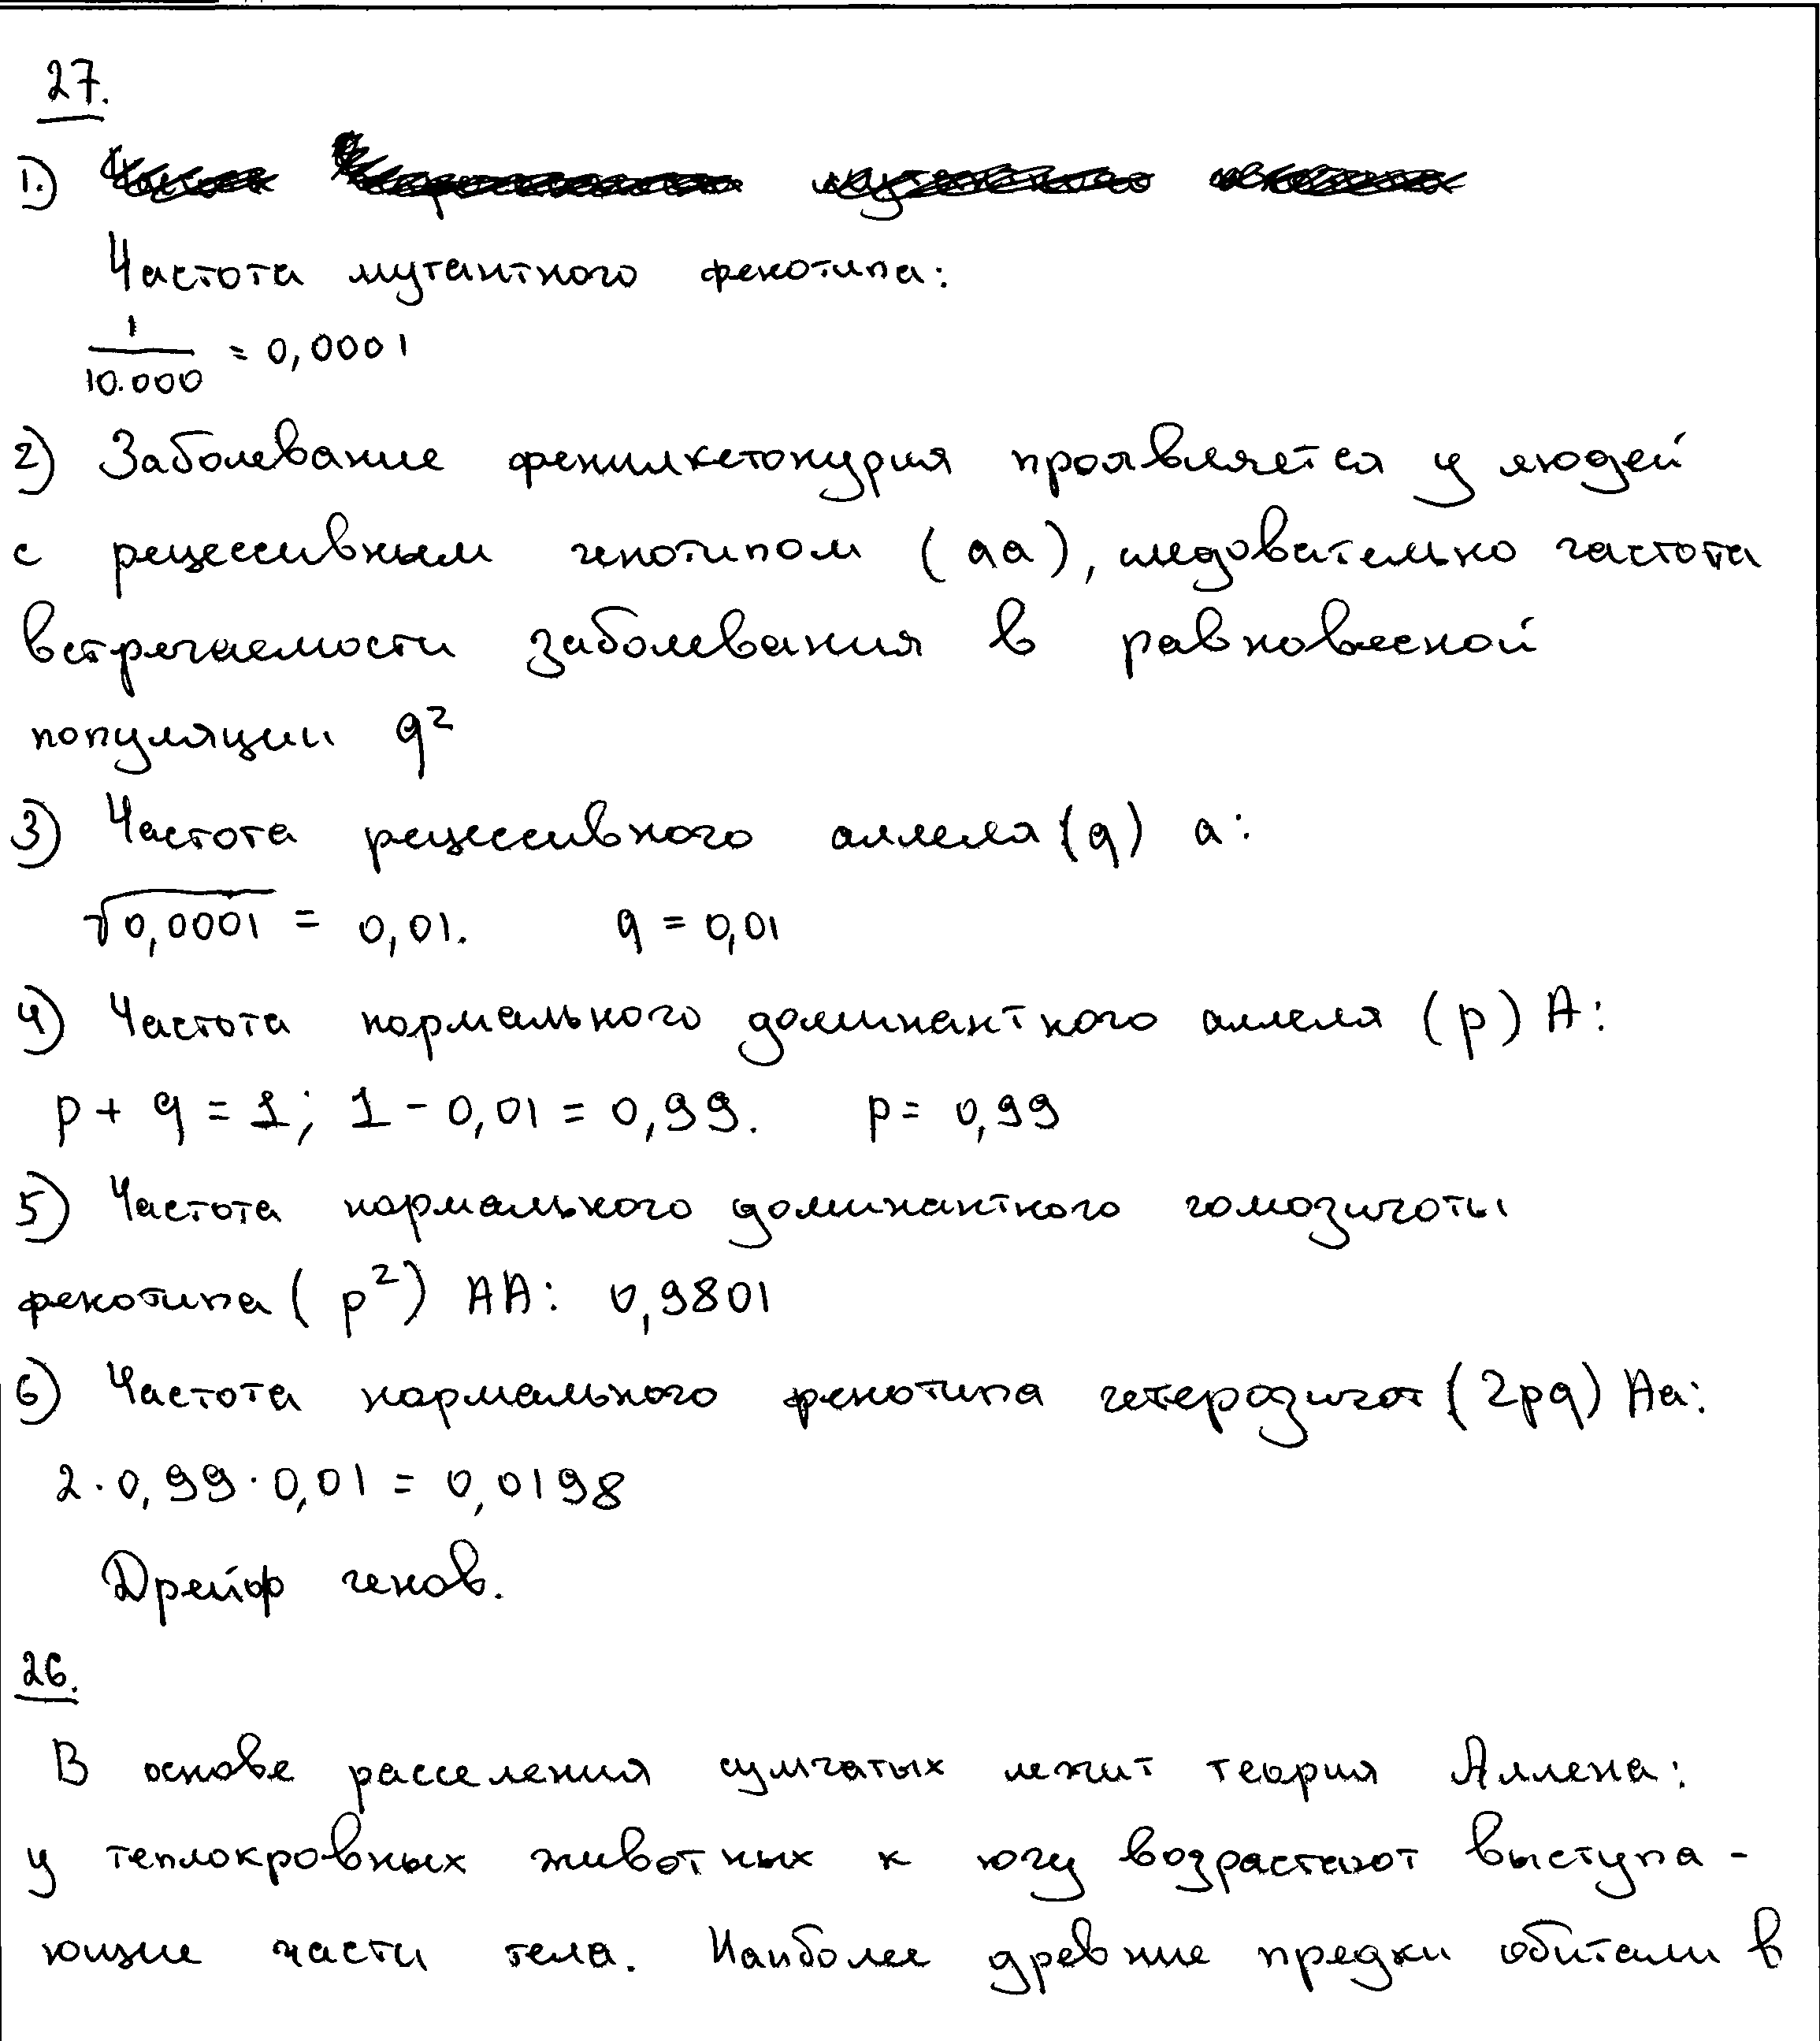 27.
1)
Частота мутантного фенотипа:
1/10.000 = 0,0001
2) Заболевание фенилкетонурия проявляется у людей
с рецессивным генотипом (aa), следовательно частота
встречаемости заболевания в равновесной
популяции q²
3) Частота рецессивного аллеля (q) a:
√0,0001 = 0,01. q = 0,01
4) Частота нормального доминантного аллеля (p) A:
p + q = 1; 1 - 0,01 = 0,99. p = 0,99
5) Частота нормального доминантного гомозиготы
фенотипа (p²) AA: 0,9801
6) Частота нормального фенотипа гетерозигот (2pq) Aa:
2 · 0,99 · 0,01 = 0,0198
Дрейф генов.
26.
В основе расселения сумчатых лежит теория Аллена:
у теплокровных животных к югу возрастают выступа-
ющие части тела. Наиболее древние предки обитали в